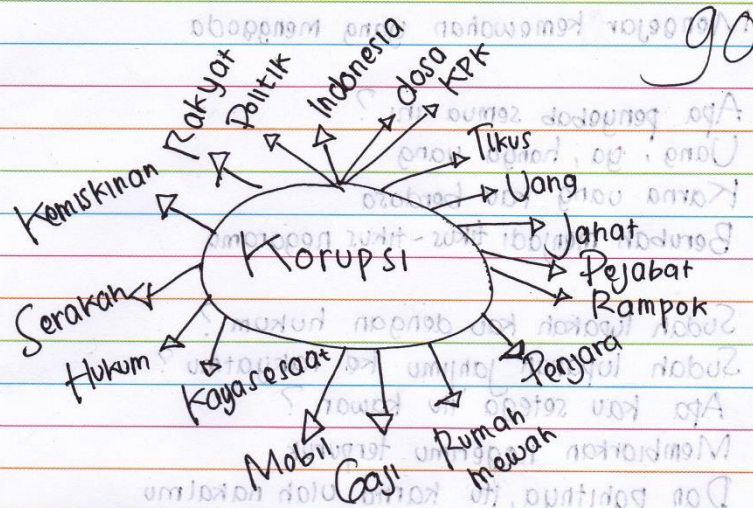 90
Korupsi
Kemiskinan
Rakyat
Politik
Indonesia
dosa
KPK
Tikus
Uang
Jahat
Pejabat
Rampok
Penjara
Rumah
mewah
Gaji
Mobil
Kayasesaat
Hukum
Serakah